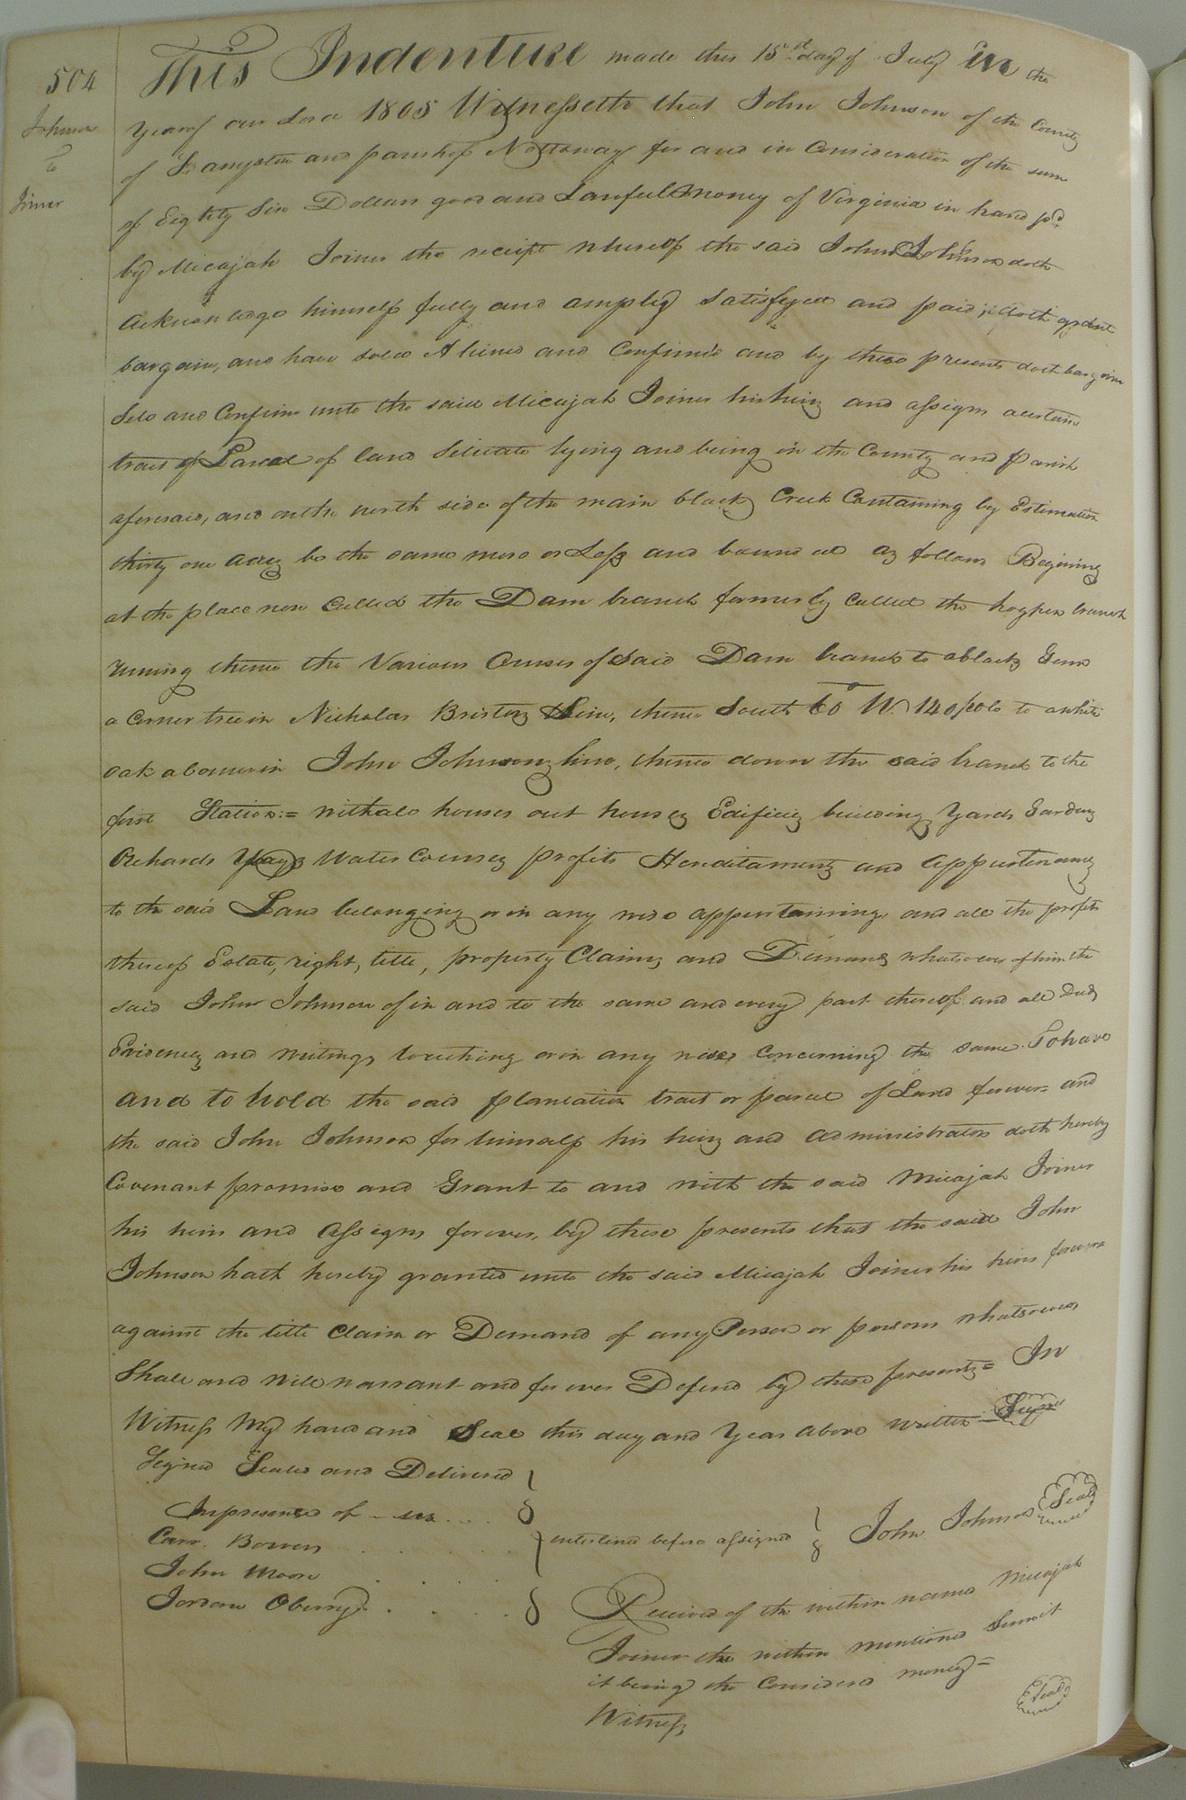 504
Johnson
to
Joiner
This Indenture made this 15th day of July In the
year of our Lord 1805 Witnesseth that John Johnson of the County
of and parish of Nottoway for and in Consideration of the sum
of Eighty Six Dollars good and Lawfull Money of Virginia in hand pd
by Micajah Joiner the receipt whereof the said John Johnson doth
Acknowledge himself fully and amply Satisfyed and paid, doth grant
bargain, and have sold Aliened and Confirmed and by these presents doth bargain
Sell and Confirm unto the said Micajah Joiner his heirs and assigns a certain
tract of Parcel of land Situate lying and being in the County and parish
aforesaid, and on the north side of the main black Creek Containing by Estimation
thirty one acres be the same more or Less and bounded as follows Begining
at the place now Called the Dam branch formerly Called the hogpen branch
runing thence the Various Courses of said Dam branch to a black Gum
a corner tree in Nicholas line, thence South 60° W. 140 pole to a white
oak a corner in John Johnsons line, thence down the said branch to the
first Station := with all houses out houses Edifices buildings Yards Gardens
Orchards Ways Water Courses profits Heriditaments and Appurtenances
to the said Land belonging or in any wise appertaining and all the profits
thereof Estate, right, title, property Claims and Demands whatsoever of him the
said John Johnson of in and to the same and every part thereof and all Deeds
Evidences and writings touching or in any wise concerning the same To have
and to hold the said plantation tract or parcel of Land forever and
the said John Johnson for himself his heirs and administrators doth hereby
Covenant promise and Grant to and with the said Micajah Joiner
his heirs and Assigns forever, by these presents that the said John
Johnson hath hereby granted unto the said Micajah Joiner his heirs forever
against the title Claim or Demand of any Person or persons whatsoever
Shall and Will warrant and for ever Defend by these presents = In
Witness My hand and Seal this day and Year above written
Signed Sealed and Delivered
In presence of us
Carr. Bowers
enterlined before assigned John Johnson Seal
John Moore
Jordan Oberry
Received of the within named Micajah
Joiner the within mentioned
it being the Considerd money =
Witness
Seal